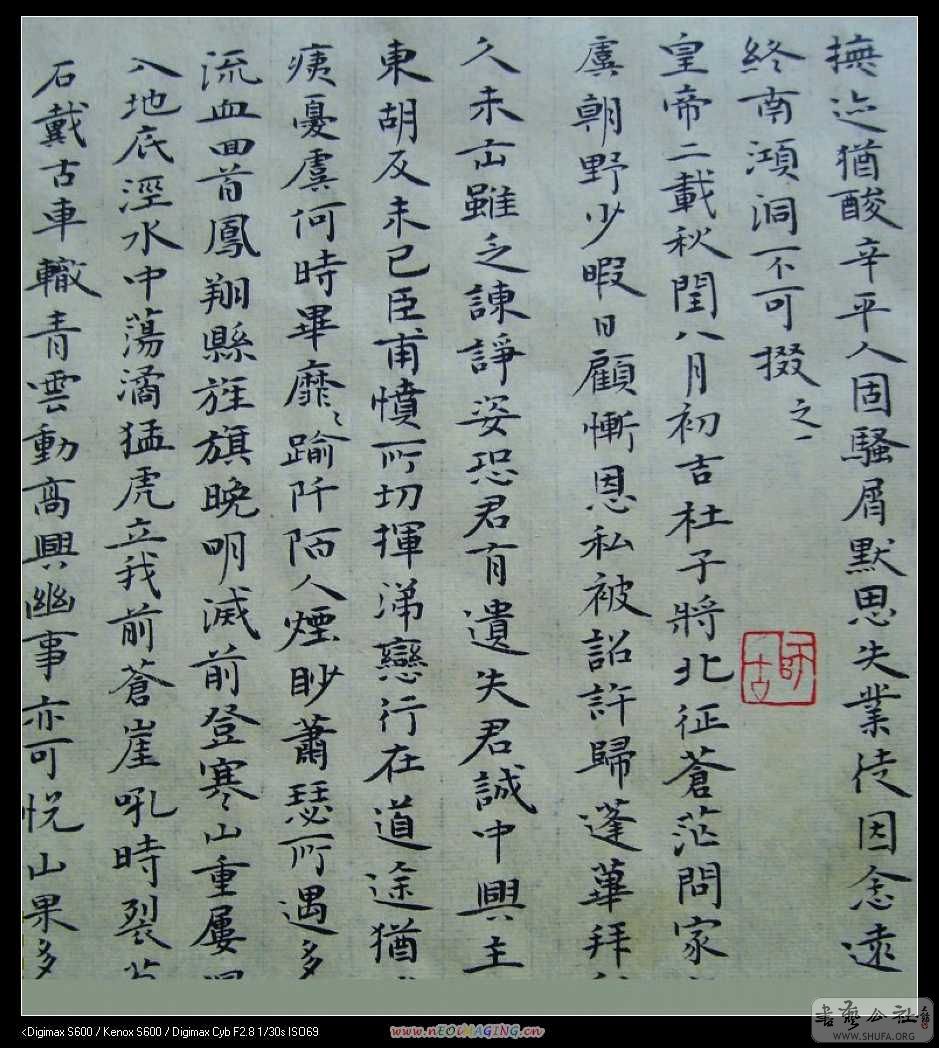 撫迹猶酸辛平人固騷屑默思失業徒因念遠
終南澒洞不可掇 之一
皇帝二載秋閏八月初吉杜子將北征蒼茫問家
虞朝野少暇日顧慚恩私被詔許歸蓬蓽拜
久未出雖乏諫諍姿恐君有遺失君誠中興主
東胡反未已臣甫憤所切揮涕戀行在道途猶
痍憂虞何時畢靡〻踰阡陌人煙眇蕭瑟所遇多
流血回首鳳翔縣旌旗晚明滅前登寒山重屢
入地底涇水中蕩潏猛虎立我前蒼崖吼時裂
石戴古車轍青雲動高興幽事亦可悅山果多
師古
<Digimax S600 / Kenox S600 / Digimax Cyb F2.8 1/30s ISO69
www.nEOiMAGiNG.cn
書藝公社
WWW.SHUFA.ORG